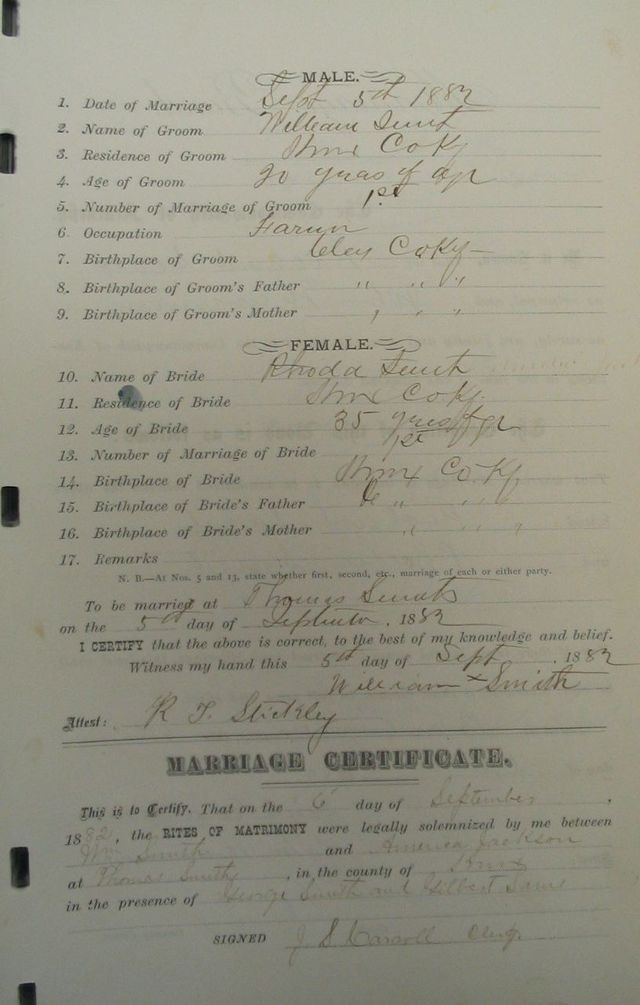 MALE.
1. Date of Marriage Sept 5th 1882
2. Name of Groom William Smith
3. Residence of Groom Knox Co Ky
4. Age of Groom 20 years of age
5. Number of Marriage of Groom 1st
6. Occupation Farmer
7. Birthplace of Groom Clay Co Ky
8. Birthplace of Groom's Father " " "
9. Birthplace of Groom's Mother " " "
FEMALE.
10. Name of Bride Rhoda Smith
11. Residence of Bride Knox Co Ky.
12. Age of Bride 35 years of age
13. Number of Marriage of Bride 1st
14. Birthplace of Bride Knox Co Ky
15. Birthplace of Bride's Father " " "
16. Birthplace of Bride's Mother " " "
17. Remarks
N. B.—At Nos. 5 and 13, state whether first, second, etc., marriage of each or either party.
To be married at Thomas Smiths
on the 5th day of September, 1882
I CERTIFY that the above is correct, to the best of my knowledge and belief.
Witness my hand this 5th day of Sept, 1882
William x Smith
Attest: R T. Stickley
MARRIAGE CERTIFICATE.
This is to Certify, That on the 6 day of September,
1882, the RITES OF MATRIMONY were legally solemnized by me between
Wm Smith and America Jackson
at Thomas Smiths, in the county of Knox
in the presence of George Smith and Gilbert
SIGNED J S Carroll